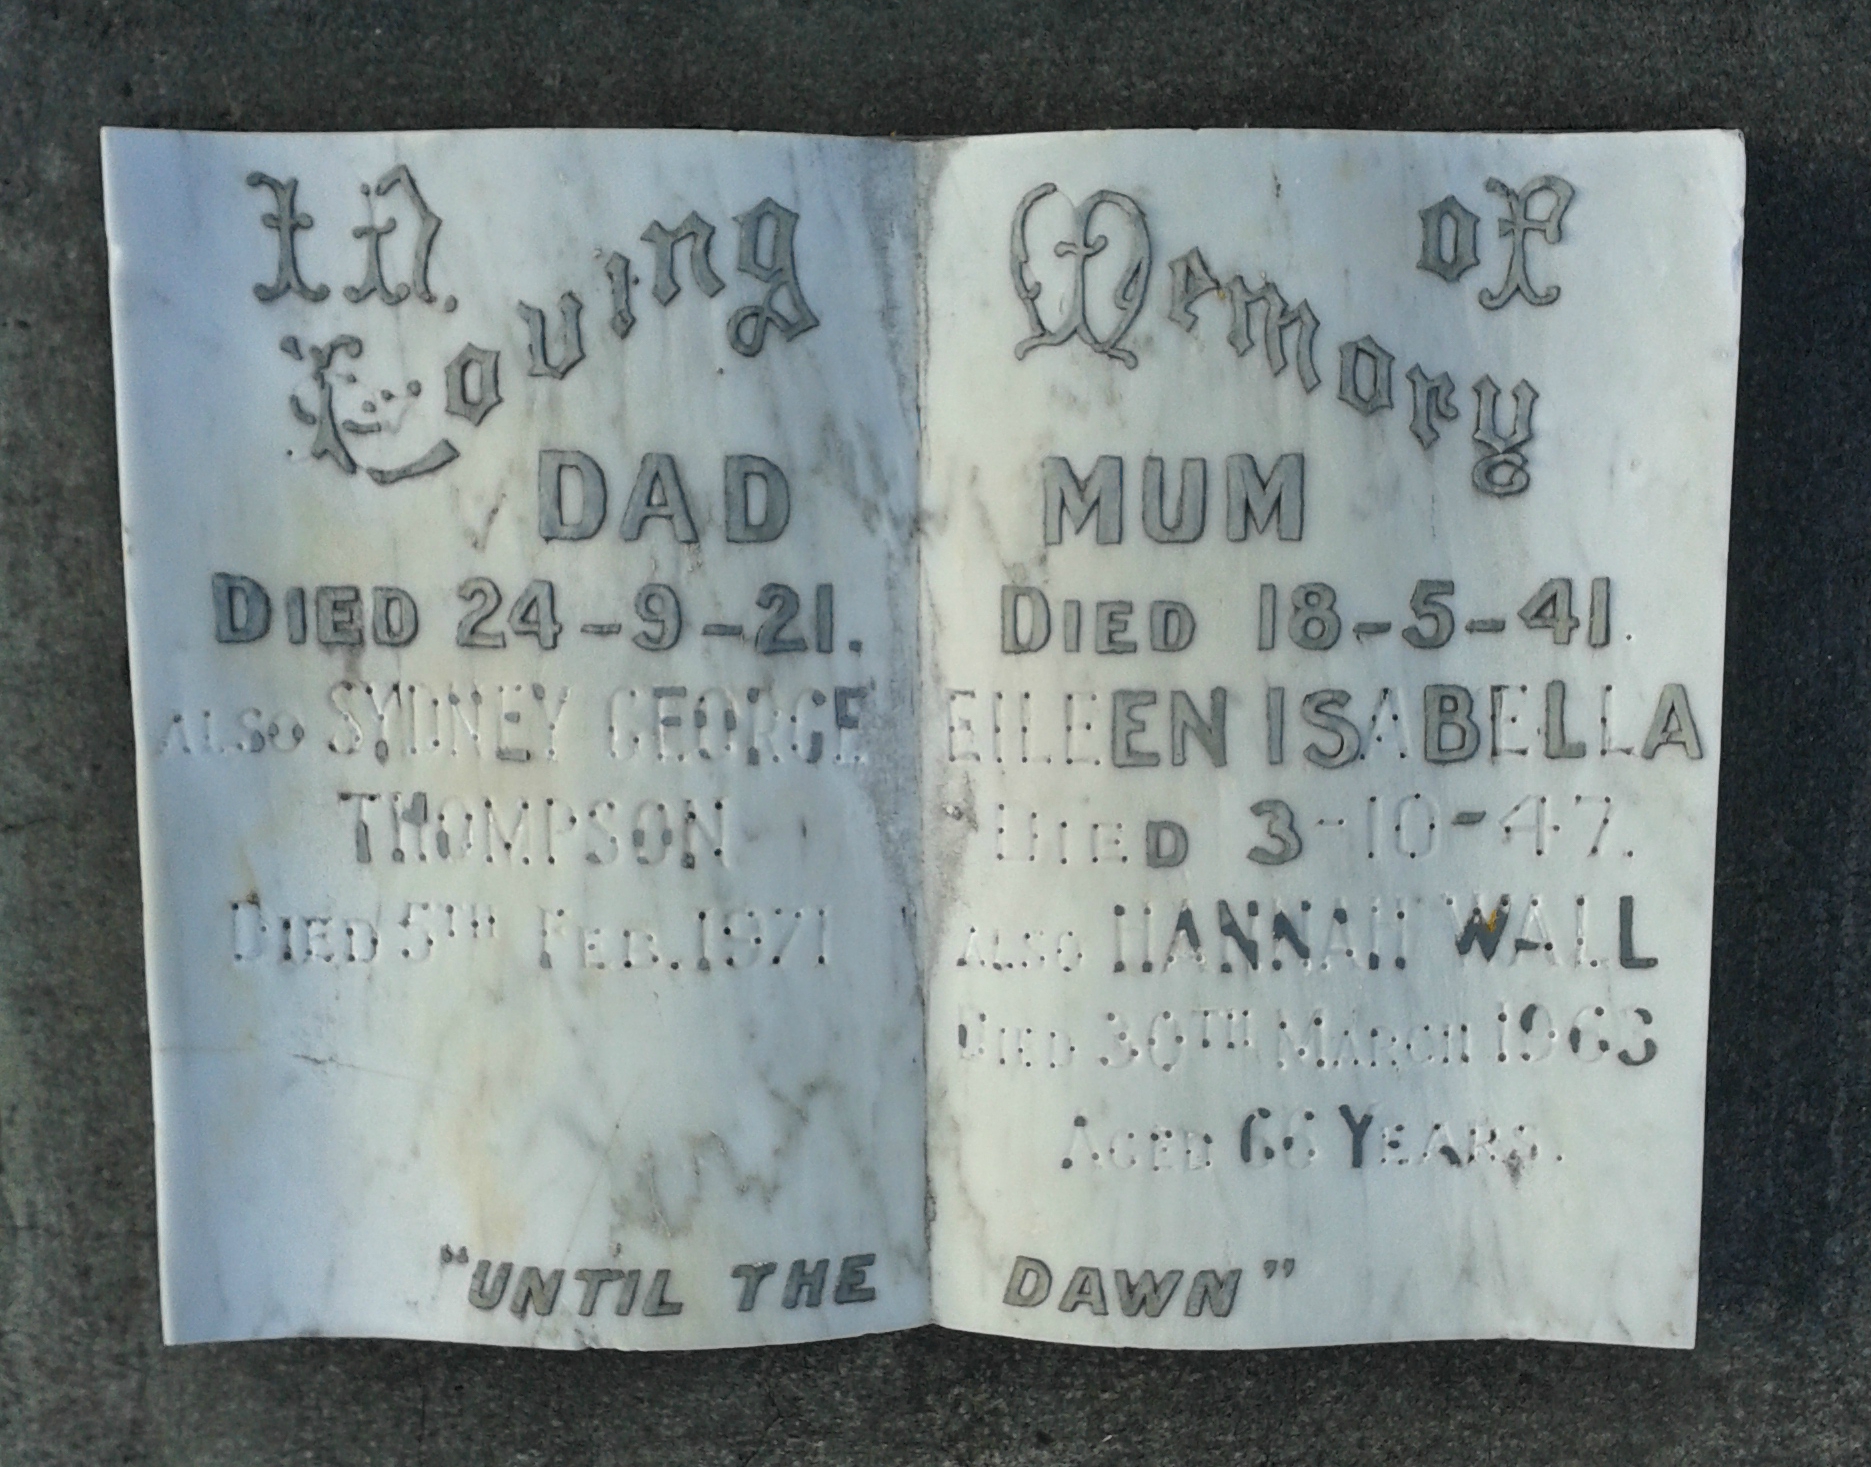 In
Loving
DAD
DIED 24-9-21.
ALSO SYDNEY GEORGE
THOMPSON
DIED 5TH FEB. 1971
"UNTIL THE
Memory of
MUM
DIED 18-5-41.
EILEEN ISABELLA
DIED 3-10-47.
ALSO HANNAH WALL
DIED 30TH MARCH 1963
AGED 66 YEARS.
DAWN"